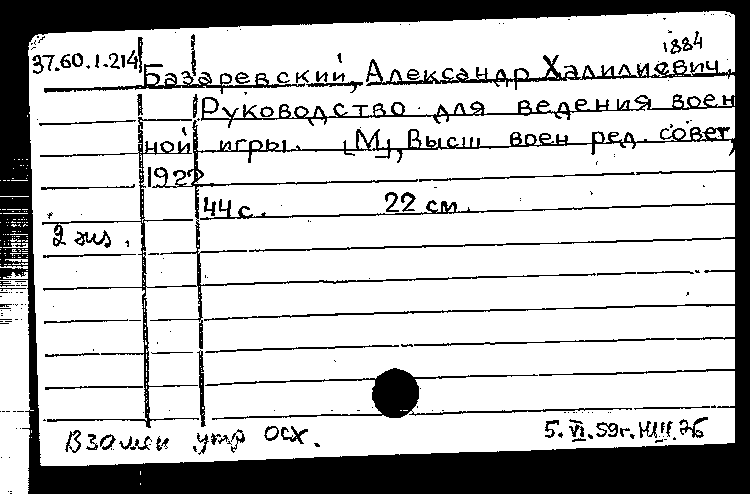 1884
37.60.1.214 Базаревский, Александр Халилиевич.
Руководство для ведения воен
ной игры. [М], Высш воен ред. совет,
1922
44 с. 22 см.
2 экз.
Взамен утр
5.VI.59г.